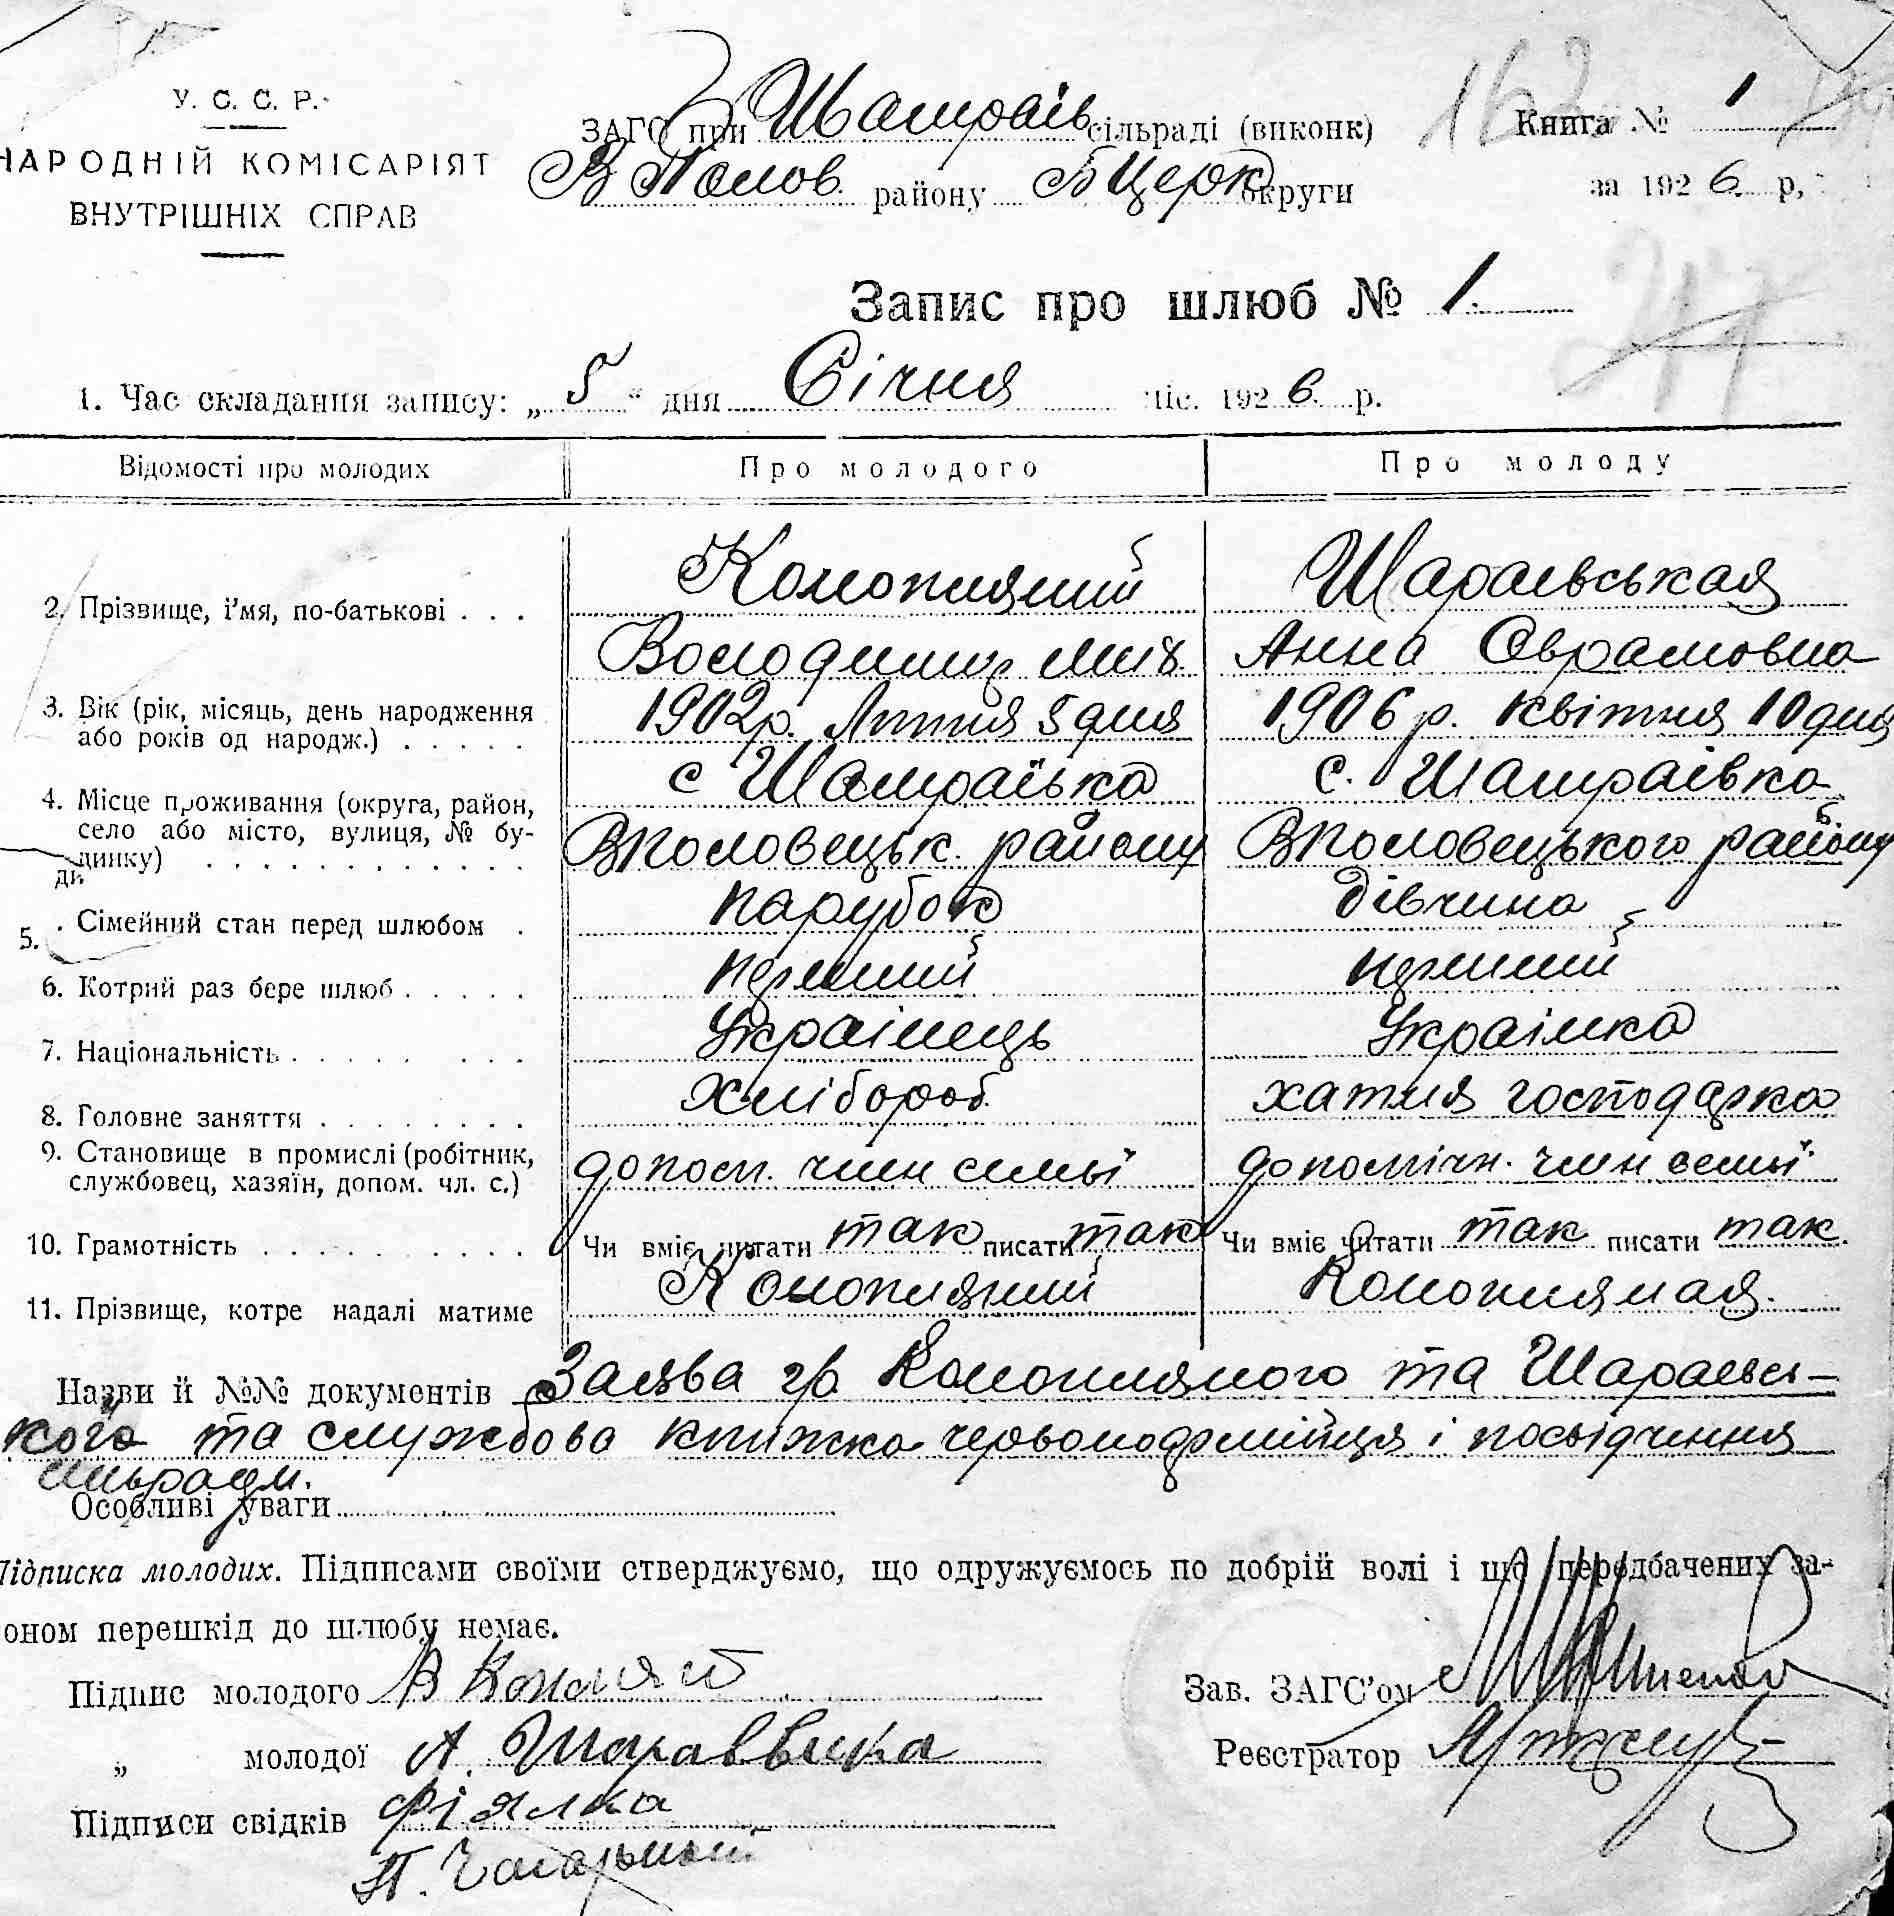 У. С. С. Р.
НАРОДНІЙ КОМІСАРІЯТ
ВНУТРІШНІХ СПРАВ
ЗАГС при Шамраїв сільраді (виконк)
В Полов. району Б Церк округи
162
Книга № 1
за 1926. р,
Запис про шлюб № 1.
1. Час складання запису: „ 5 “ дня Січня міс. 1926. р.
Відомості про молодих Про молодого Про молоду
Конопляний Шараевськая
2. Прізвище, і'мя, по-батькові . . .
Володимир Мих. Анна Оврамовна
3. Вік (рік, місяць, день народження 1902р. Лютня 5 дня 1906 р. Квітня 10 дня
або років од народж.) . . . . .
с Шамраївка с. Шамраївка
4. Місце проживання (округа, район,
село або місто, вулиця, № бу-
динку) . . . . . . . . . . . . Вполовецьк. району Вполовецького району
парубок дівчина
5. Сімейний стан перед шлюбом .
перший перший
6. Котрий раз бере шлюб . . . . .
Українець Українка
7. Національність . . . . . . . .
хлібороб. хатня господарка
8. Головне заняття . . . . . . . .
9. Становище в промислі (робітник,
службовец, хазяїн, допом. чл. с.) допом. член семьї допомічн. член семьї
10. Грамотність . . . . . . . . . . Чи вміє читати так писати так Чи вміє читати так писати так.
Конопляний Конопляная.
11. Прізвище, котре надалі матиме
Назви й №№ документів Заява гр. Конопляного та Шараевсь-
кого та службова книжка червоноармійця і посвідчення
сільради.
Особливі уваги
Підписка молодих. Підписами своїми стверджуємо, що одружуємось по добрій волі і що передбачених за-
оном перешкід до шлюбу немає.
Підпис молодого В
Зав. ЗАГС'ом
„ молодої А.
Реєстратор
Підписи свідків Фіялка
П.